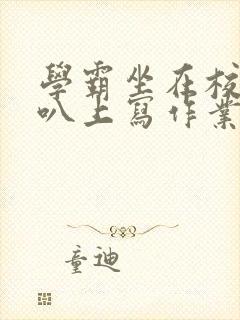 學霸坐在校
叭上寫作業
童迪